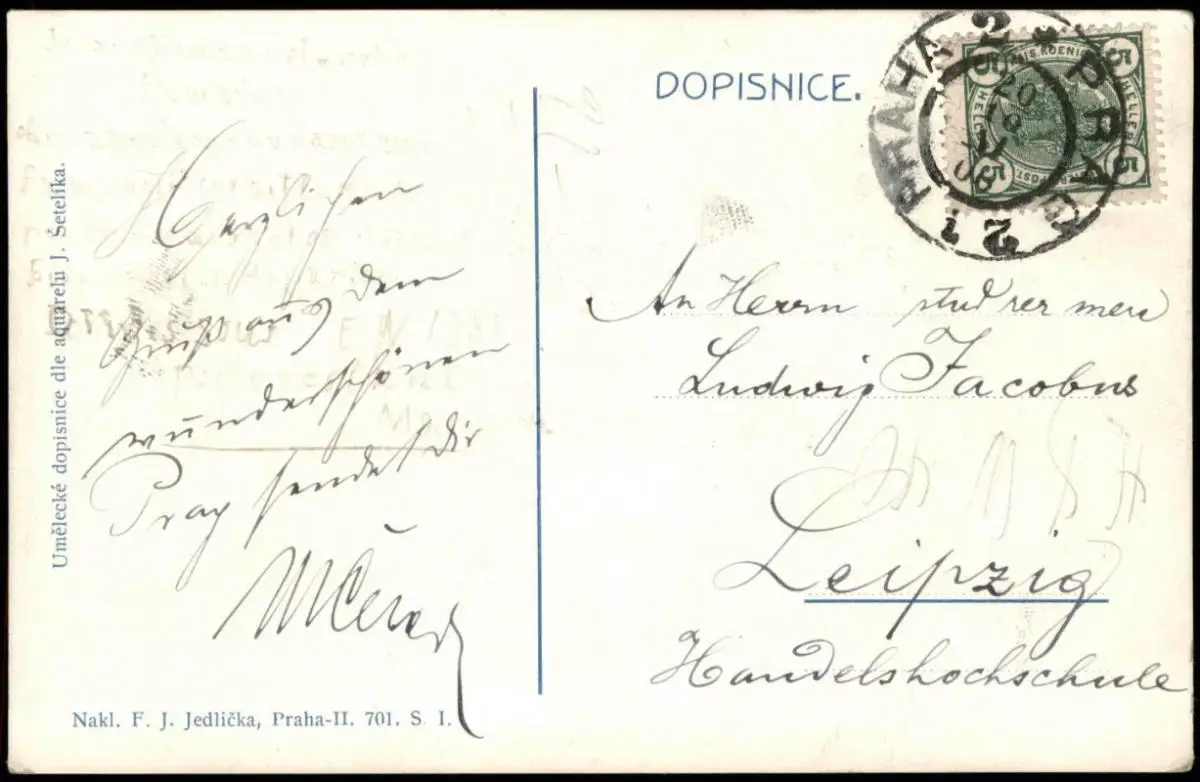 DOPISNICE.
PRAHA 2 * PRAG 2
5 5
HELLER HELLER
5 5
Umělecké dopisnice dle aquarelu J. Šetelíka.
Herzlichen
Gruß aus dem
wunderschönen
Prag sendet dir
An Herrn stud rer merc
Ludwig Jacobus
Leipzig
Handelshochschule
Nakl. F. J. Jedlička, Praha-II. 701. S. I.